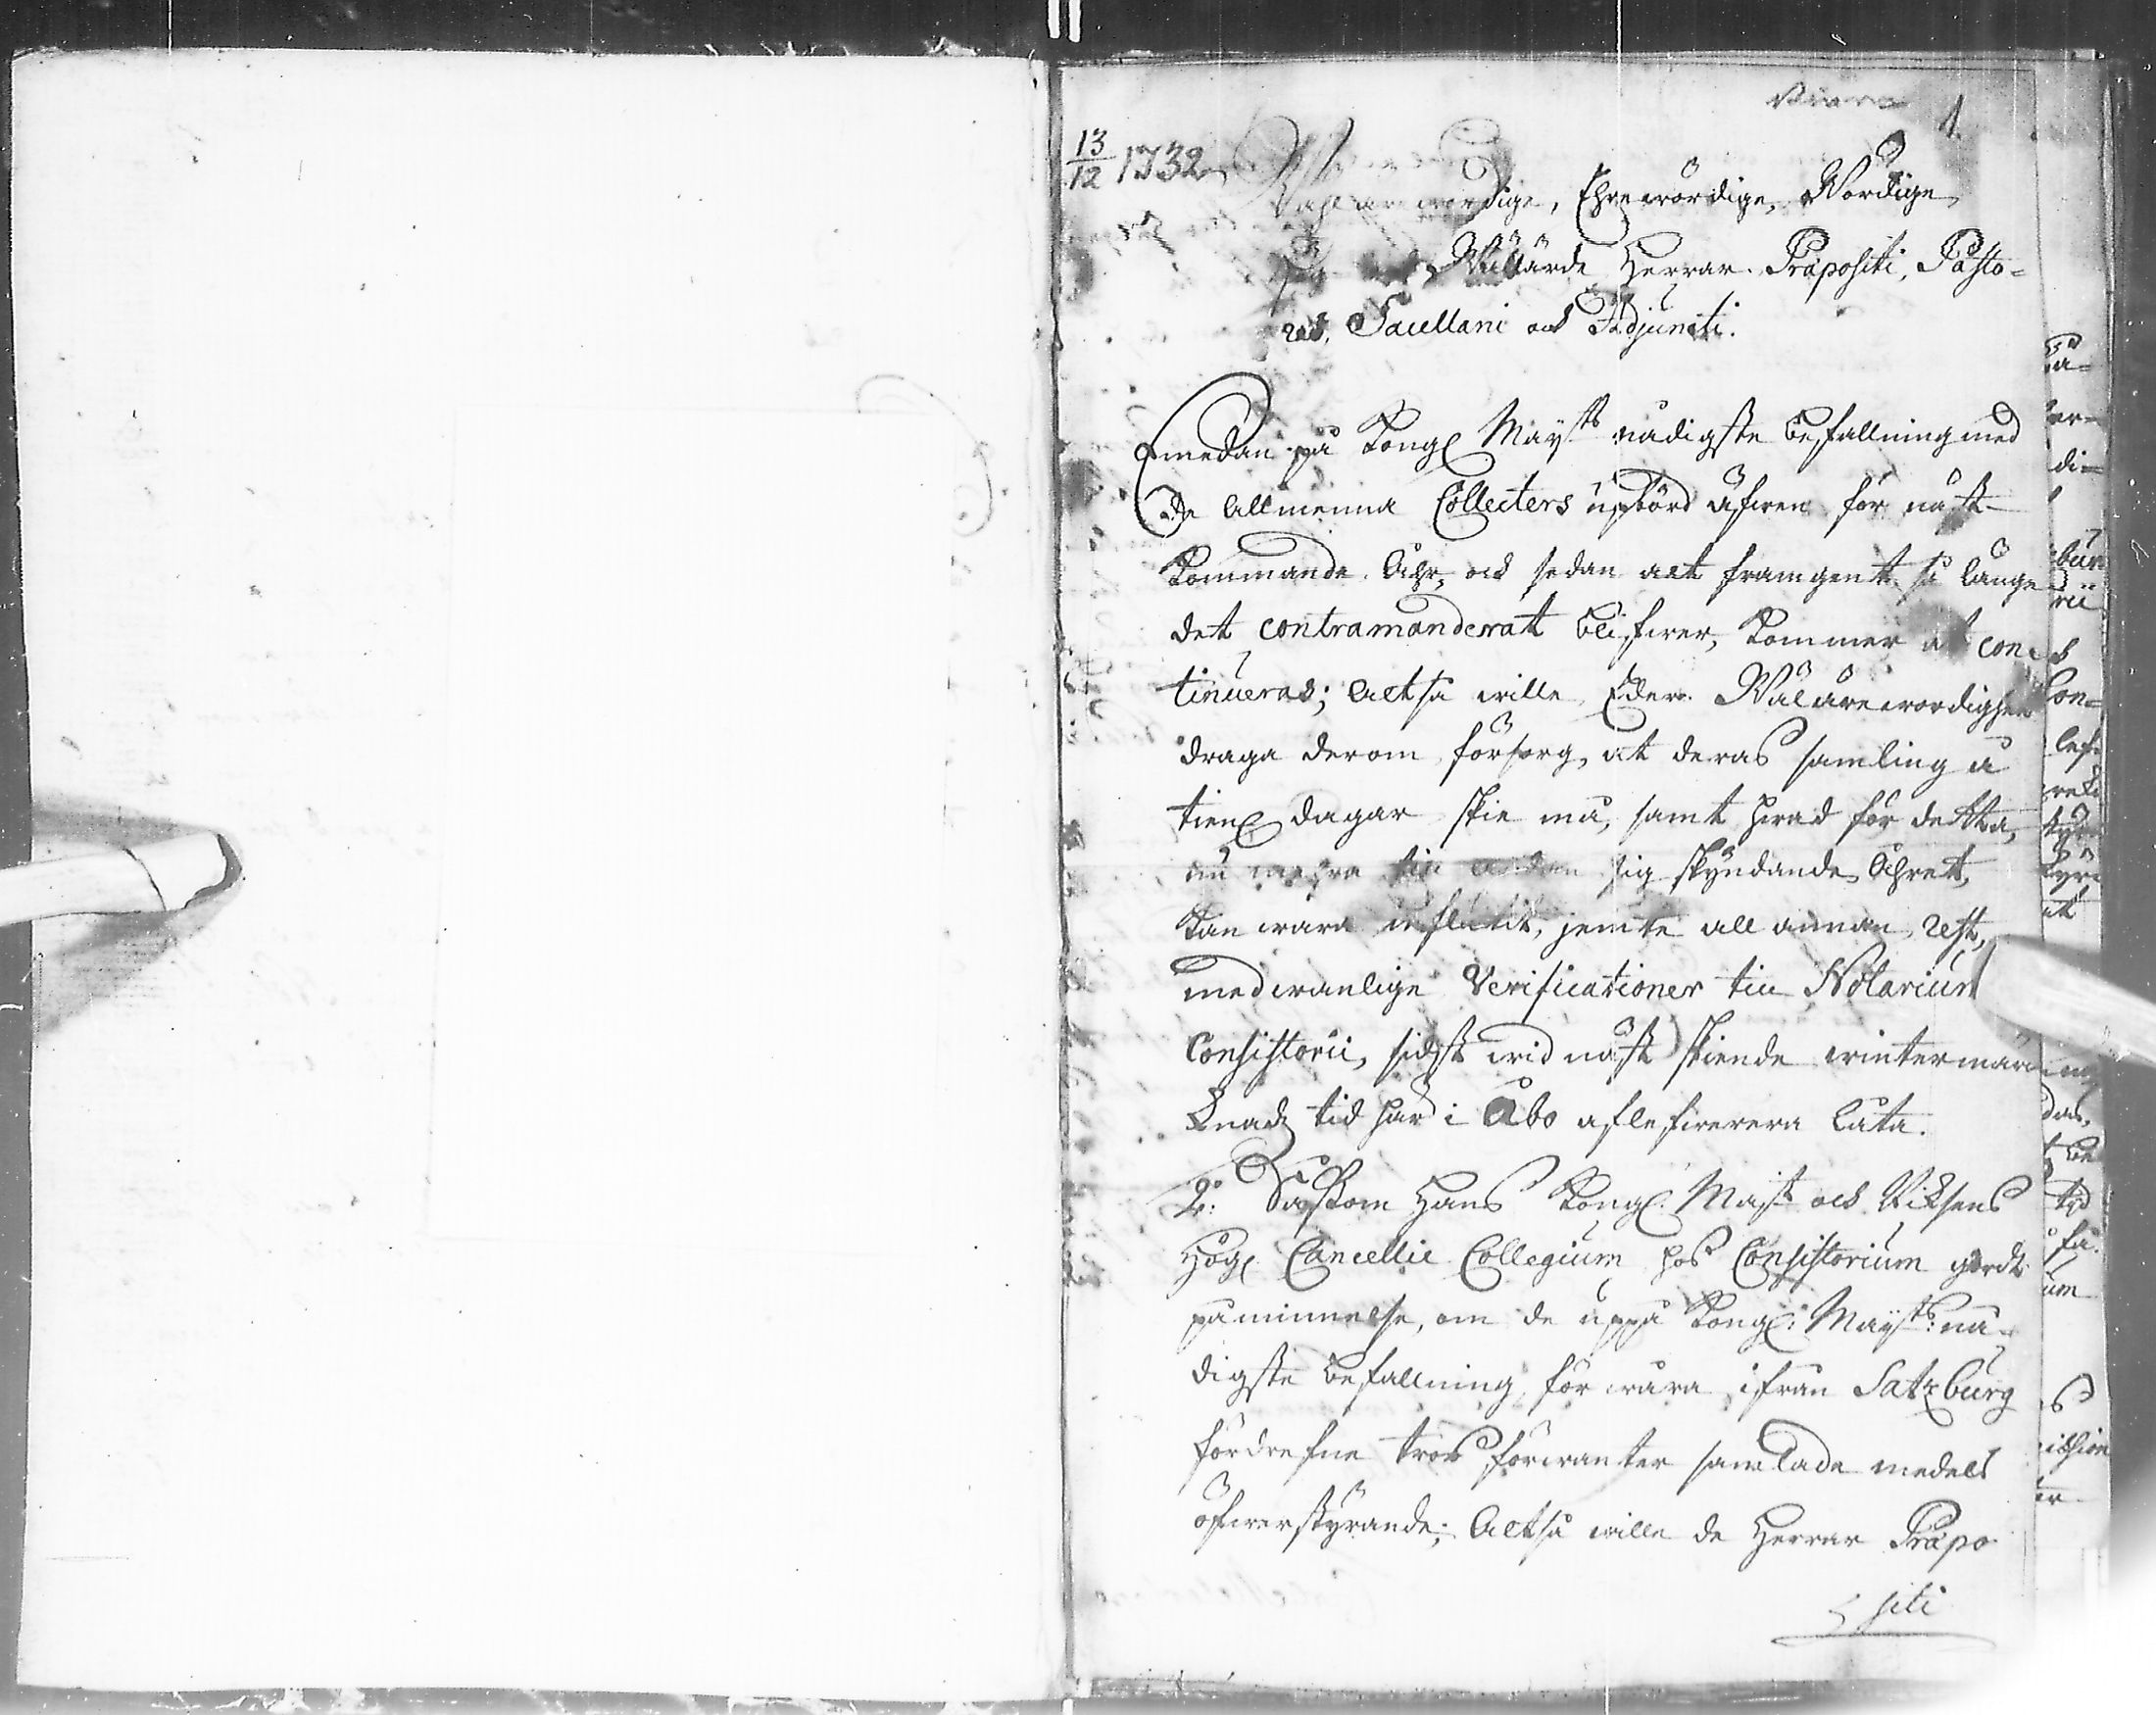 1.
13/12 1732
Wählärewördige, Ehrewördige, Wördige
Wällärde Herrar Præpositi, Pasto-
res, Sacellani och Adjuncti.
Emedan på Kongl Mayts nådigste befallning med
de allmenna Collecters upbörd äfwen för näst-
kommande Åhr, och sedan alt framgent så länge
det contramanderat blifwer, kommer at con-
tinueras; Altså wille Eder Wäl ärewördigheter
draga derom försorg, at deras samling å
tienl dagar skie må, samt hwad för detta,
nu mehra till ändan sig skyndande Åhret,
kan wara influtit, jemte all annan rest,
med wanlige Verificationer till Notarium
Consistorii, sidst wid näst skiende wintermar-
knadz tid här i Åbo aflefwerera låta.
2: Såssom Hans Kongl. Maj:t och Riksens
Högl Cancellie Collegium hos Consistorium giordt
påminnelse, om de uppå Kongl: Mayts: nå-
digste befallning för wåra ifrån Saltzburg
fördrefne tros förwanter samlade medels
öfwerstyrande; Altså wille de Herrar Præpo
siti